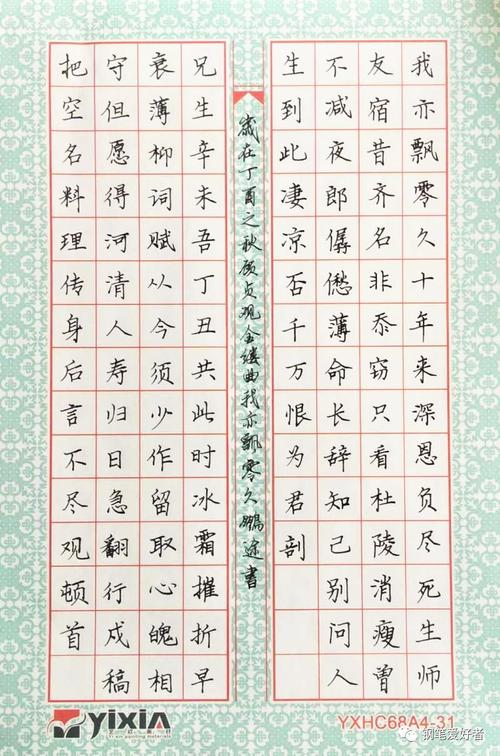 我亦飘零久十年来深恩负尽死生师
友宿昔齐名非忝窃只看杜陵消瘦曾
不减夜郎僝僽薄命长辞知己别问人
生到此凄凉否千万恨为君剖
歲在丁酉之秋顾贞观金缕曲我亦飘零久鵬途書
兄生辛未吾丁丑共此时冰霜摧折早
衰薄柳词赋从今须少作留取心魄相
守但愿得河清人寿归日急翻行戍稿
把空名料理传身后言不尽观顿首
yixin
YXHC68A4-31
钢笔爱好者